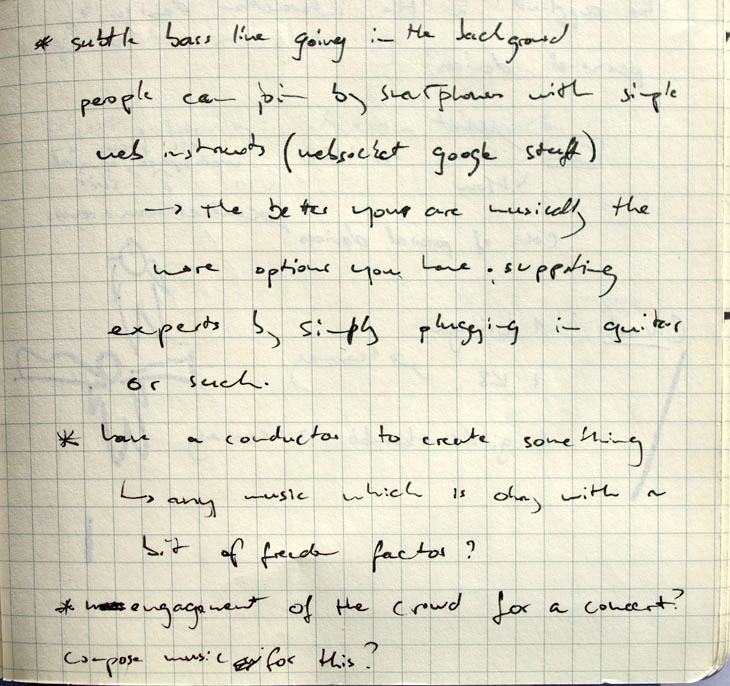 * subtle bass line going in the background
people can join by smartphones with simple
web instruments (websocket google stuff)
→ the better your are musically the
more options you have . supporting
experts by simply plugging in guitar
or such.
* have a conductor to create something
↳ any music which is okay with a
bit of freedom factor?
* engagement of the crowd for a concert?
compose music for this?